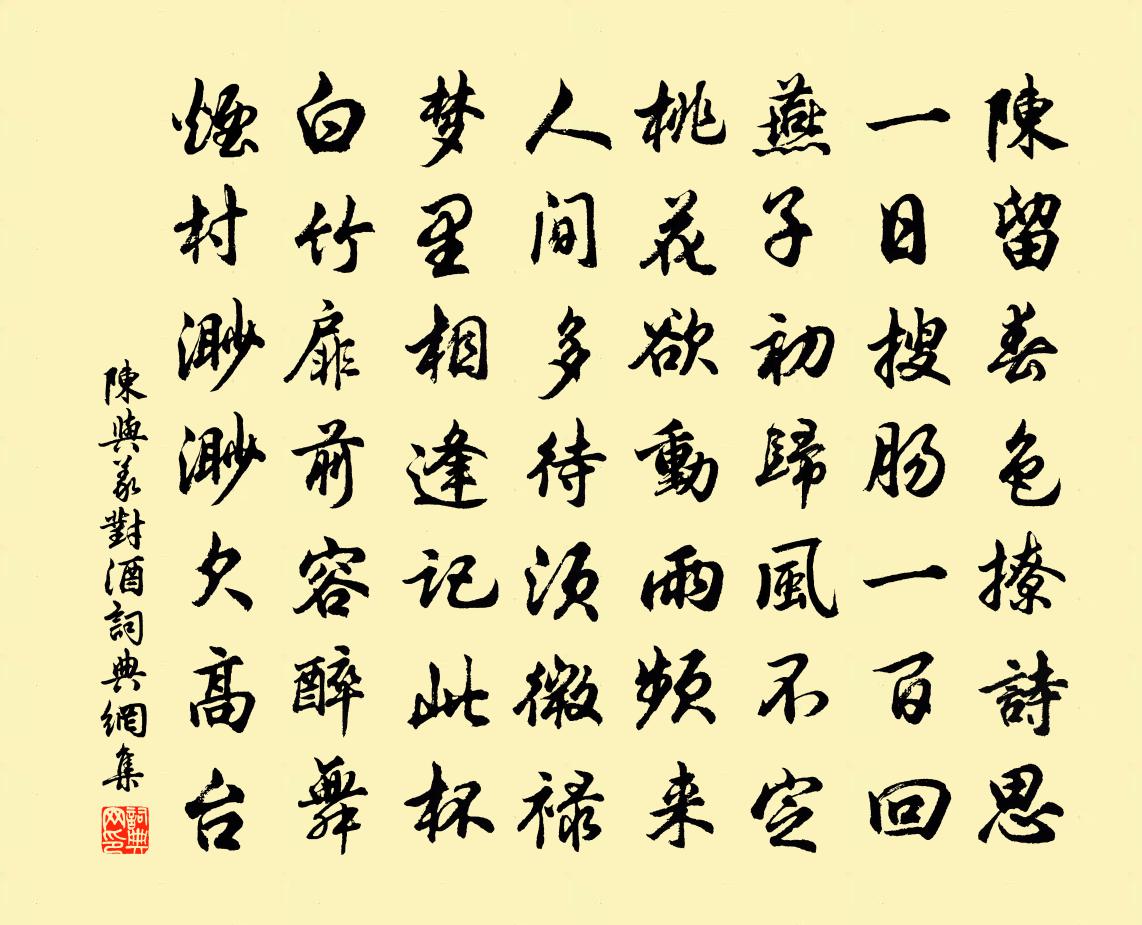 陳留春色撩詩思
一日搜肠一百回
燕子初歸風不定
桃花欲動雨頻来
人间多待须微禄
梦里相逢记此杯
白竹扉前容醉舞
煙村渺渺欠高台
陳與义對酒詞典網集
詞典
网印